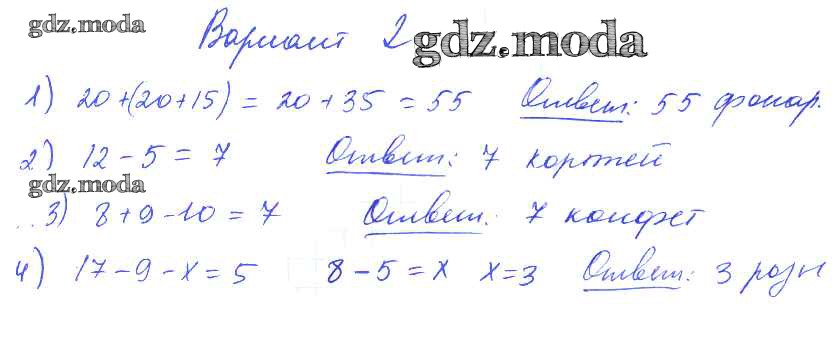 gdz.moda
Вариант 2 gdz.moda
1) 20+(20+15) = 20+35 = 55 Ответ: 55 фонар.
2) 12-5 = 7 Ответ: 7 коржей
gdz.moda
3) 8+9-10 = 7 Ответ: 7 конфет
4) 17-9-x=5 8-5=x x=3 Ответ: 3 розы